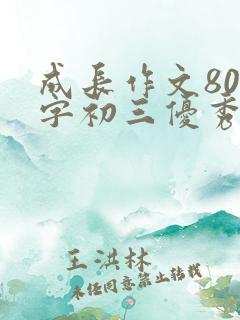 成长作文80
字初三優秀
王洪林
未经同意禁止转载